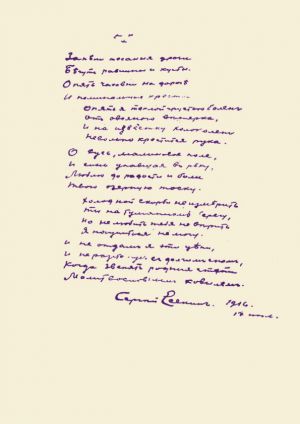 Запели тесаные дроги
Бегут равнины и кусты.
Опять часовни на дороге
И поминальные кресты.
Опять я теплой грустью болен
От овсяного ветерка,
И на известку колоколен
Невольно крестится рука.
О Русь, малиновое поле,
И синь упавшая в реку,
Люблю до радости и боли
Твою озерную тоску.
Холодной скорби не измерить
Ты на туманном берегу,
Но не любить тебя не верить
Я научиться не могу.
И не отдам я эти цепи,
И не расстанусь с долгим сном,
Когда звенят родные степи
Молитвословным ковылем.
Сергей Есенин. 1916.